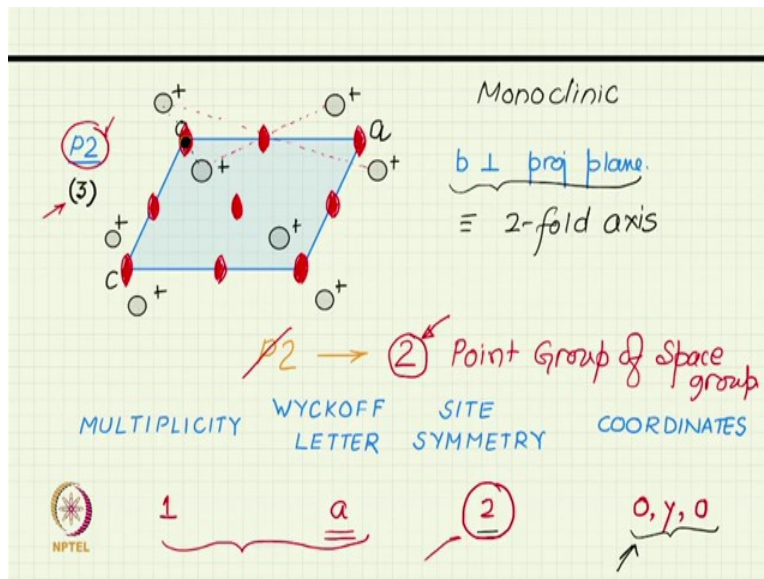 Monoclinic
P2
(3)
o
a
c
+
+
+
+
+
+
+
+
b ⊥ proj plane.
≡ 2-fold axis
P2 → 2 Point Group of Space group
MULTIPLICITY
WYCKOFF LETTER
SITE SYMMETRY
COORDINATES
1
a
2
0, y, 0
NPTEL